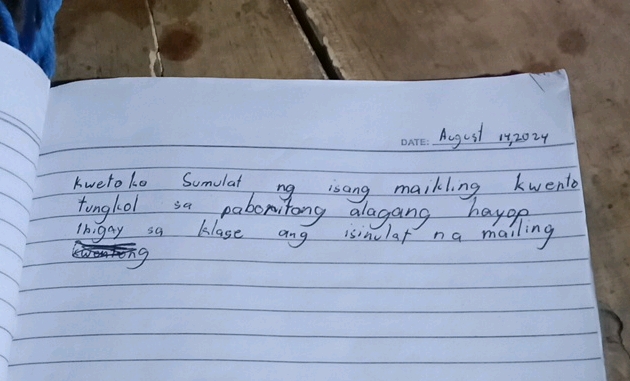 DATE: August 14, 2024
kweto ko Sumulat ng isang maikling kwento
tungkol sa paboritong alagang hayop
Ibigay sa klase ang isinulat na mailing
kwentong